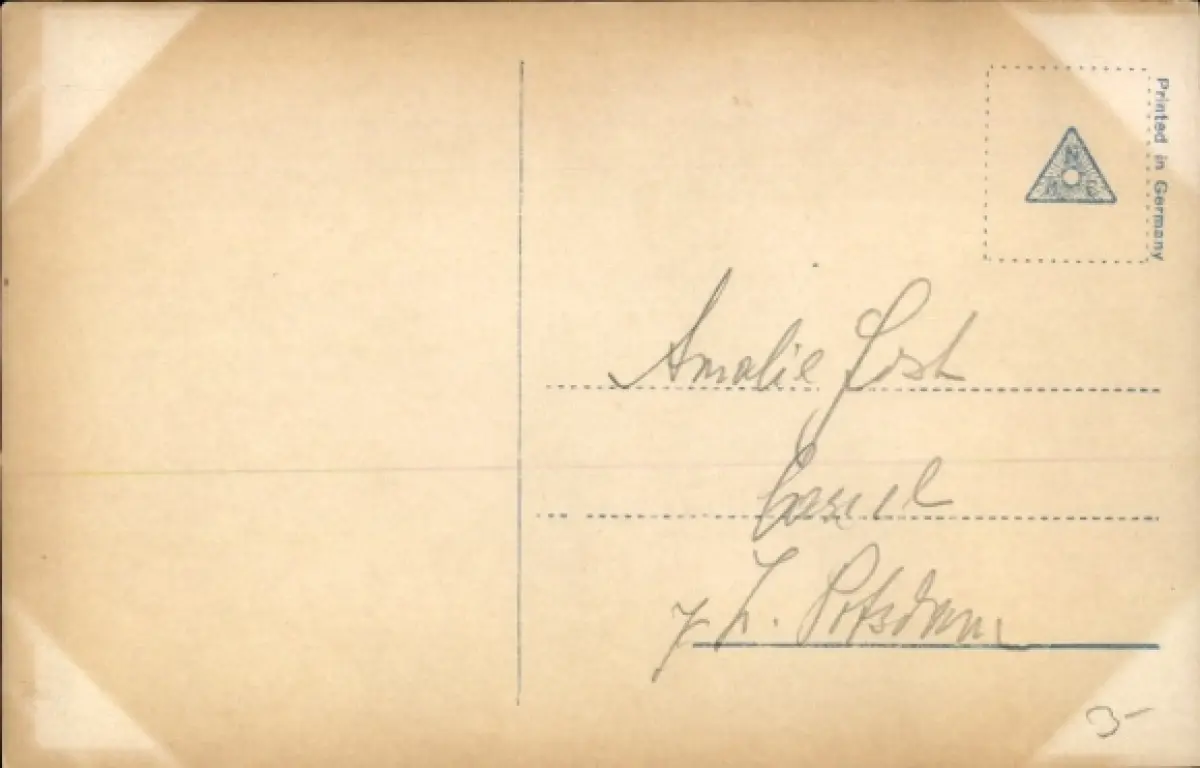 Printed in Germany
N
Amalie
Cassel
z. Z. Potsdam
3-